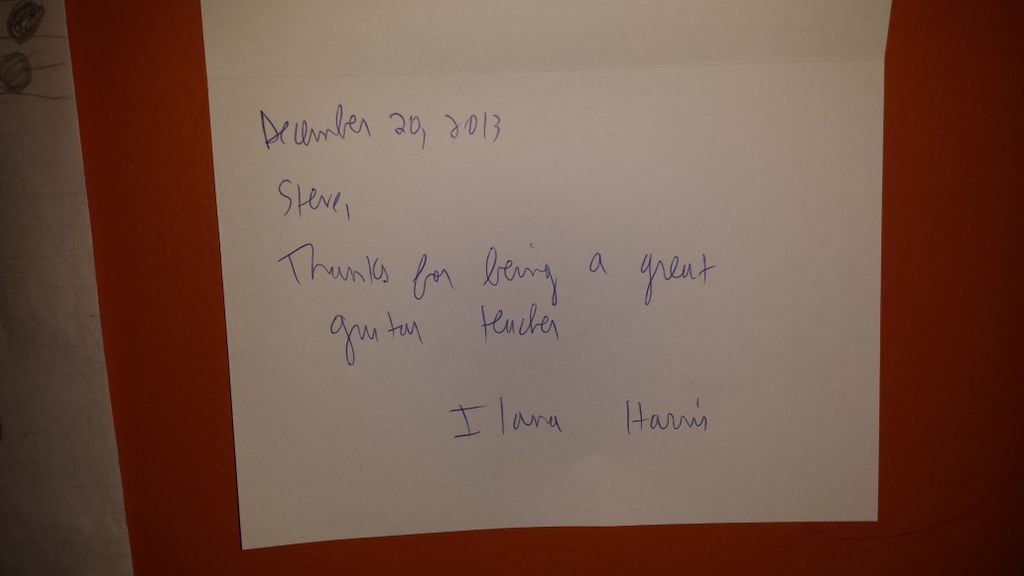 December 20, 2013
Steve,
Thanks for being a great
guitar teacher
Ilana Harris